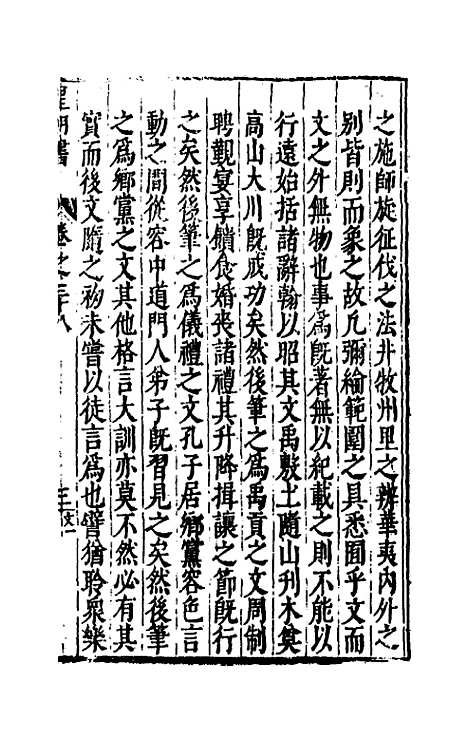 之施師旅征伐之法井牧州里之辨華夷内外之
别皆則而象之故凡彌綸範圍之具悉囿乎文而
文之外無物也事爲旣著無以紀載之則不能以
行遠始括諸辭翰以昭其文禹敷土隨山刊木奠
高山大川旣成功矣然後筆之爲禹貢之文周制
聘覲宴享饋食婚喪諸禮其升降揖讓之節旣行
之矣然後筆之爲儀禮之文孔子居鄉黨容色言
動之間從容中道門人弟子旣習見之矣然後筆
之爲鄉黨之文其他格言大訓亦莫不然必有其
實而後文隨之初未嘗以徒言爲也譬猶聆衆樂
皇明書 卷之三十八